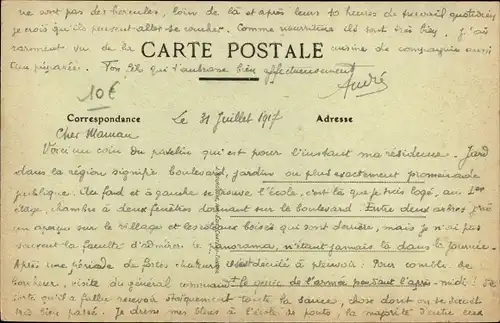 ne sont pas des hercules, loin de là et après leurs 10 heures de travail quotidien
je crois qu'ils peuvent aller se coucher. Comme nourriture ils sont très bien. J'ai
rarement vu de la cuisine de compagnie aussi
CARTE POSTALE
bien préparée. Ton gd qui t'embrasse bien affectueusement
André
10€
Correspondance
Le 31 Juillet 1917
Adresse
Cher Maman
Voici un coin du patelin qui est pour l'instant ma résidence. Jard
dans la région signifie boulevard, jardin ou plus exactement promenade
publique. Au fond et à gauche se trouve l'école, c'est là que je suis logé, au 1er
étage, chambre à deux fenêtres donnant sur le boulevard. Entre deux arbres j'ai
un aperçu sur le village et les coteaux boisés qui sont derrière, mais je n'ai pas
souvent la faculté d'admirer le panorama, n'étant jamais là dans la journée.
Après une période de fortes chaleurs le temps s'est décidé à pleuvoir : Pour comble de
bonheur, visite du général commandant le génie de l'armée pendant l'après-midi : de
sorte qu'il a fallu recevoir stoïquement toute la sauce, chose dont on se serait
très bien passé. Je dirige mes bleus à l'école de ponts, la majorité d'entre eux